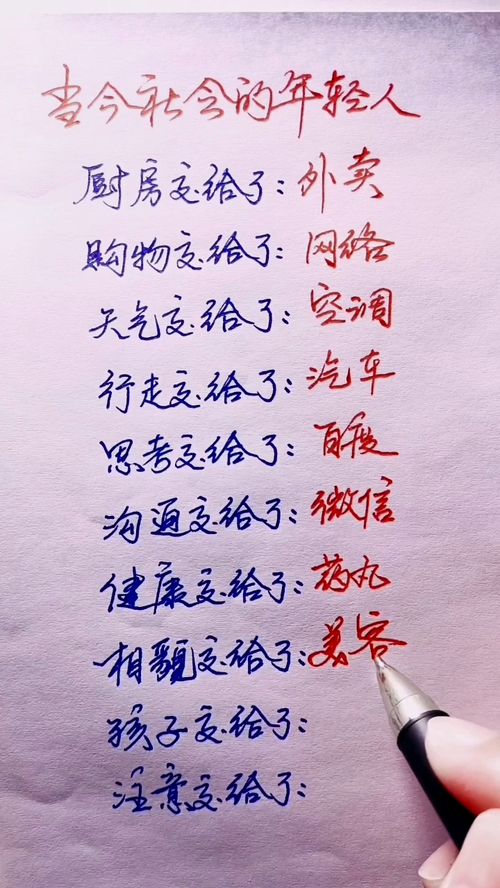 当今社会的年轻人
厨房交给了：外卖
购物交给了：网络
天气交给了：空调
行走交给了：汽车
思考交给了：百度
沟通交给了：微信
健康交给了：药丸
相貌交给了：美容
孩子交给了：
注意交给了：